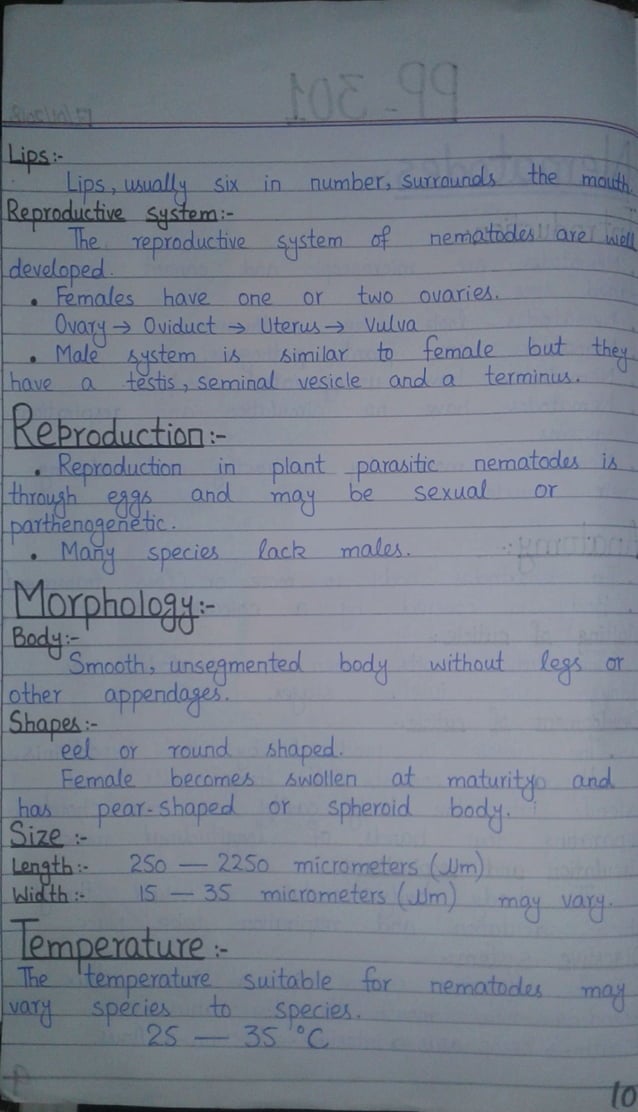 PP-301
17/01/2018
Lips:-
Lips, usually six in number, surrounds the mouth.
Reproductive system:-
The reproductive system of nematodes are well
developed.
• Females have one or two ovaries.
Ovary → Oviduct → Uterus → Vulva
• Male system is similar to female but they
have a testis, seminal vesicle and a terminus.
Reproduction:-
• Reproduction in plant parasitic nematodes is
through eggs and may be sexual or
parthenogenetic.
• Many species lack males.
Morphology:-
Body:-
Smooth, unsegmented body without legs or
other appendages.
Shapes:-
eel or round shaped.
Female becomes swollen at maturity and
has pear-shaped or spheroid body.
Size :-
Length:- 250 — 2250 micrometers (µm)
Width:- 15 — 35 micrometers (µm) may vary.
Temperature:-
The temperature suitable for nematodes may
vary species to species.
25 — 35 °C
10